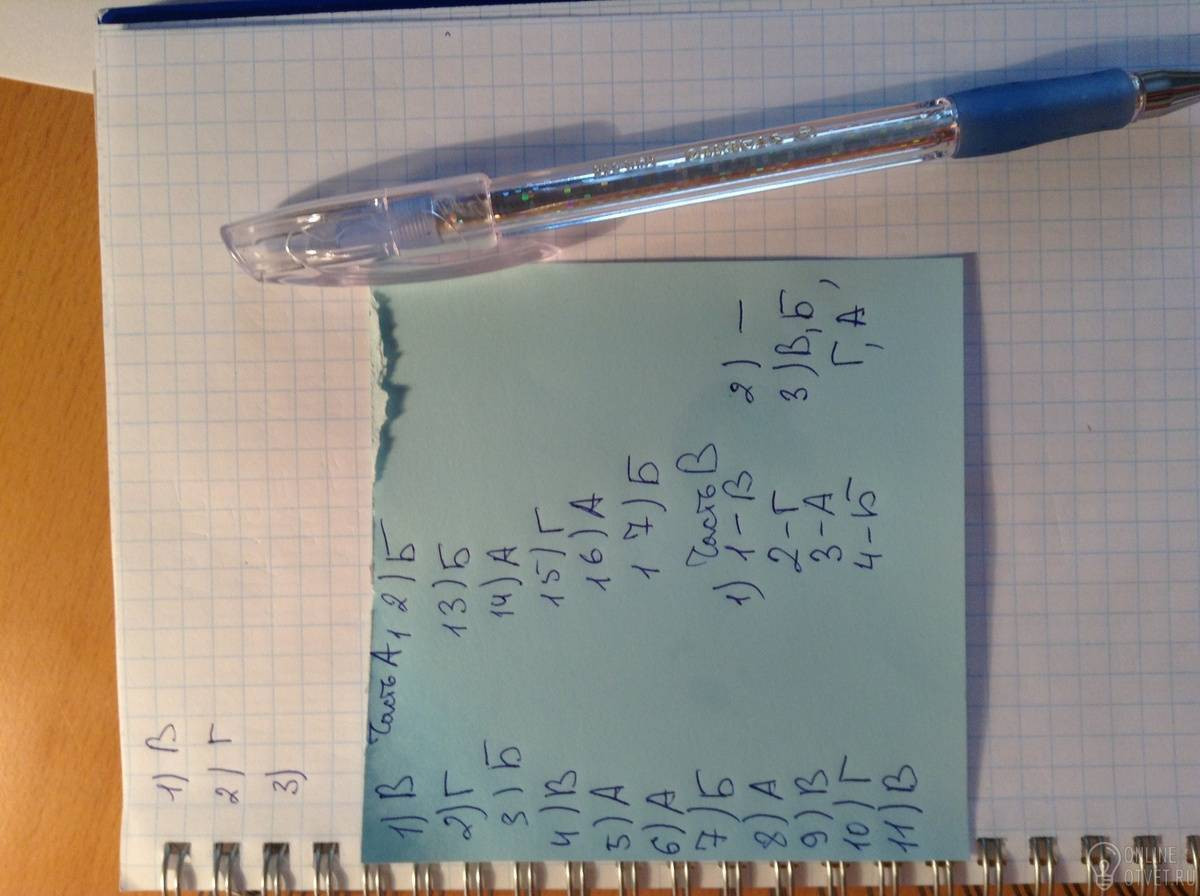 1) В
2) Г
3)
Часть А
1) В
2) Г
3) Б
4) В
5) А
6) А
7) Б
8) А
9) В
10) Г
11) В
12) Б
13) Б
14) А
15) Г
16) А
17) Б
Часть В
1) 1 – В
2 – Г
3 – А
4 – Б
2) —
3) В, Б,
Г, А
ONLINE
OTVET.RU